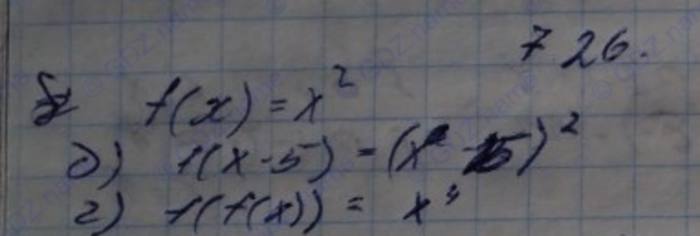 726.
f(x) = x²
д) f(x-5) = (x-5)²
г) f(f(x)) = x⁴